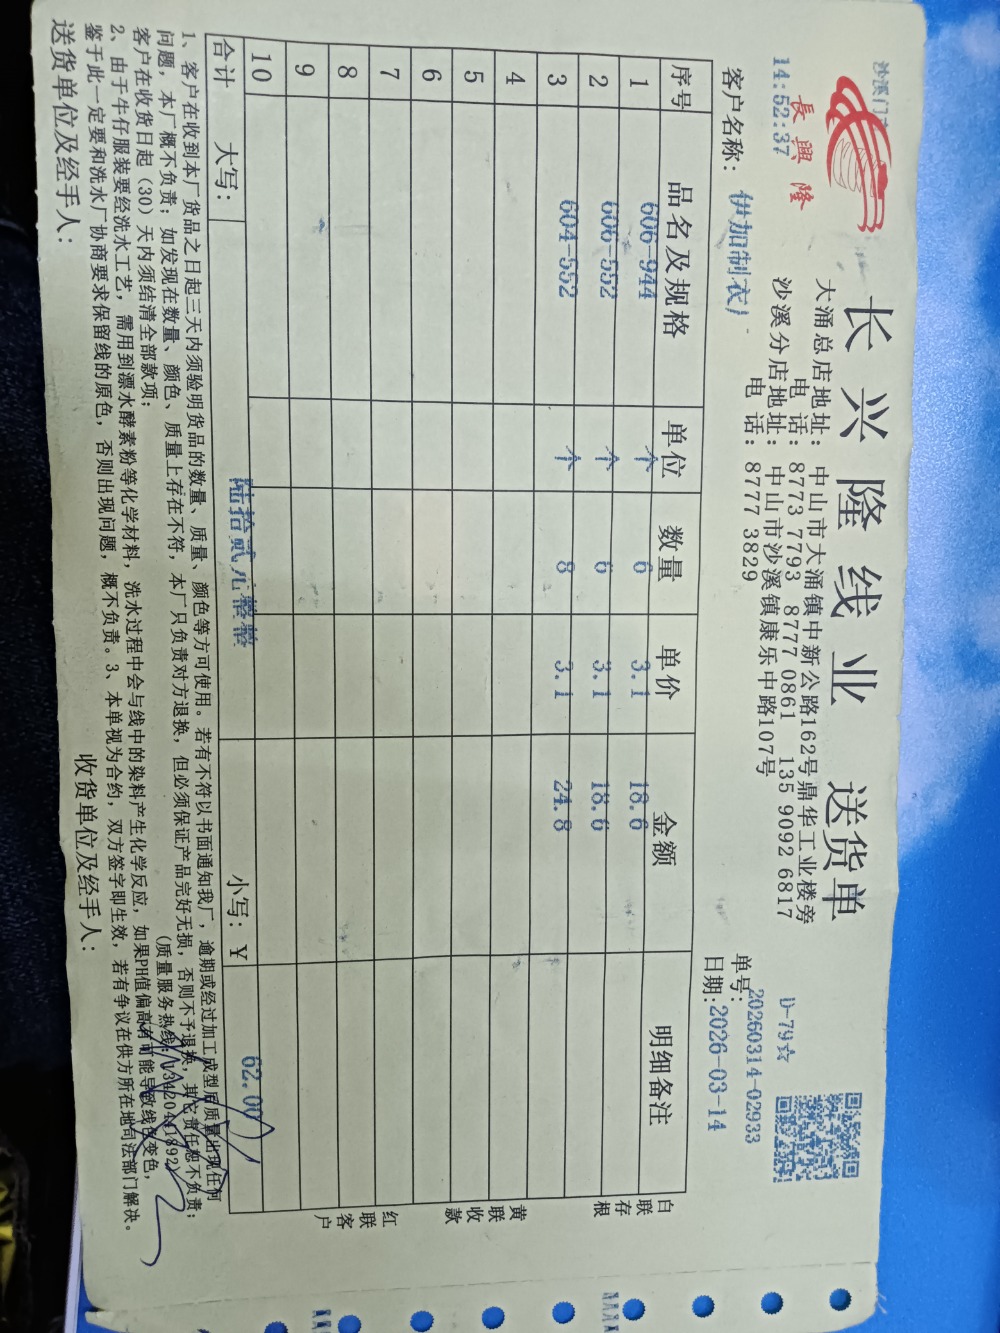 沙溪门
14:52:37
長興隆
长兴隆线业 送货单
大涌总店地址：中山市大涌镇中新公路162号鼎华工业楼旁
电 话：8773 7793 8777 0861 135 9092 6817
沙溪分店地址：中山市沙溪镇康乐中路107号
电 话：8777 3829
D-79☆
单号：20260314-02933
客户名称：伊加制衣厂
日期：2026-03-14
序号 品名及规格 单位 数量 单价 金额 明细备注
1 606-944 个 6 3.1 18.6
2 606-552 个 6 3.1 18.6
3 604-552 个 8 3.1 24.8
4
5
6
7
8
9
10
合计 大写：陆拾贰元整 小写：￥ 62.00
白联存根
黄联收款
红联客户
1、客户在收到本厂货品之日起三天内须验明货品的数量、质量、颜色等方可使用。若有不符以书面通知我厂，逾期或经过加工成型后质量出现任何
问题，本厂概不负责；如发现在数量、颜色、质量上存在不符，本厂只负责对方退换，但必须保证产品完好无损，否则不予退换，其它责任恕不负责；
客户在收货日起（30）天内须结清全部款项； （质量服务热线：13420441892）
2、由于牛仔服装要经洗水工艺，需用到漂水酵素粉等化学材料，洗水过程中会与线中的染料产生化学反应，如果PH值偏高有可能导致线色变色，
鉴于此一定要和洗水厂协商要求保留线的原色，否则出现问题，概不负责。3、本单视为合约，双方签字即生效，若有争议在供方所在地司法部门解决。
送货单位及经手人： 收货单位及经手人：